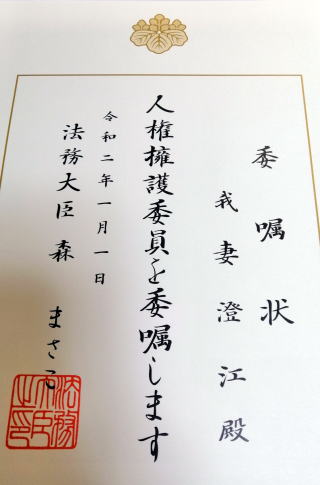 委嘱状
我妻澄江殿
人権擁護委員を委嘱します
令和二年一月一日
法務大臣 森 まさこ
法務大臣之印